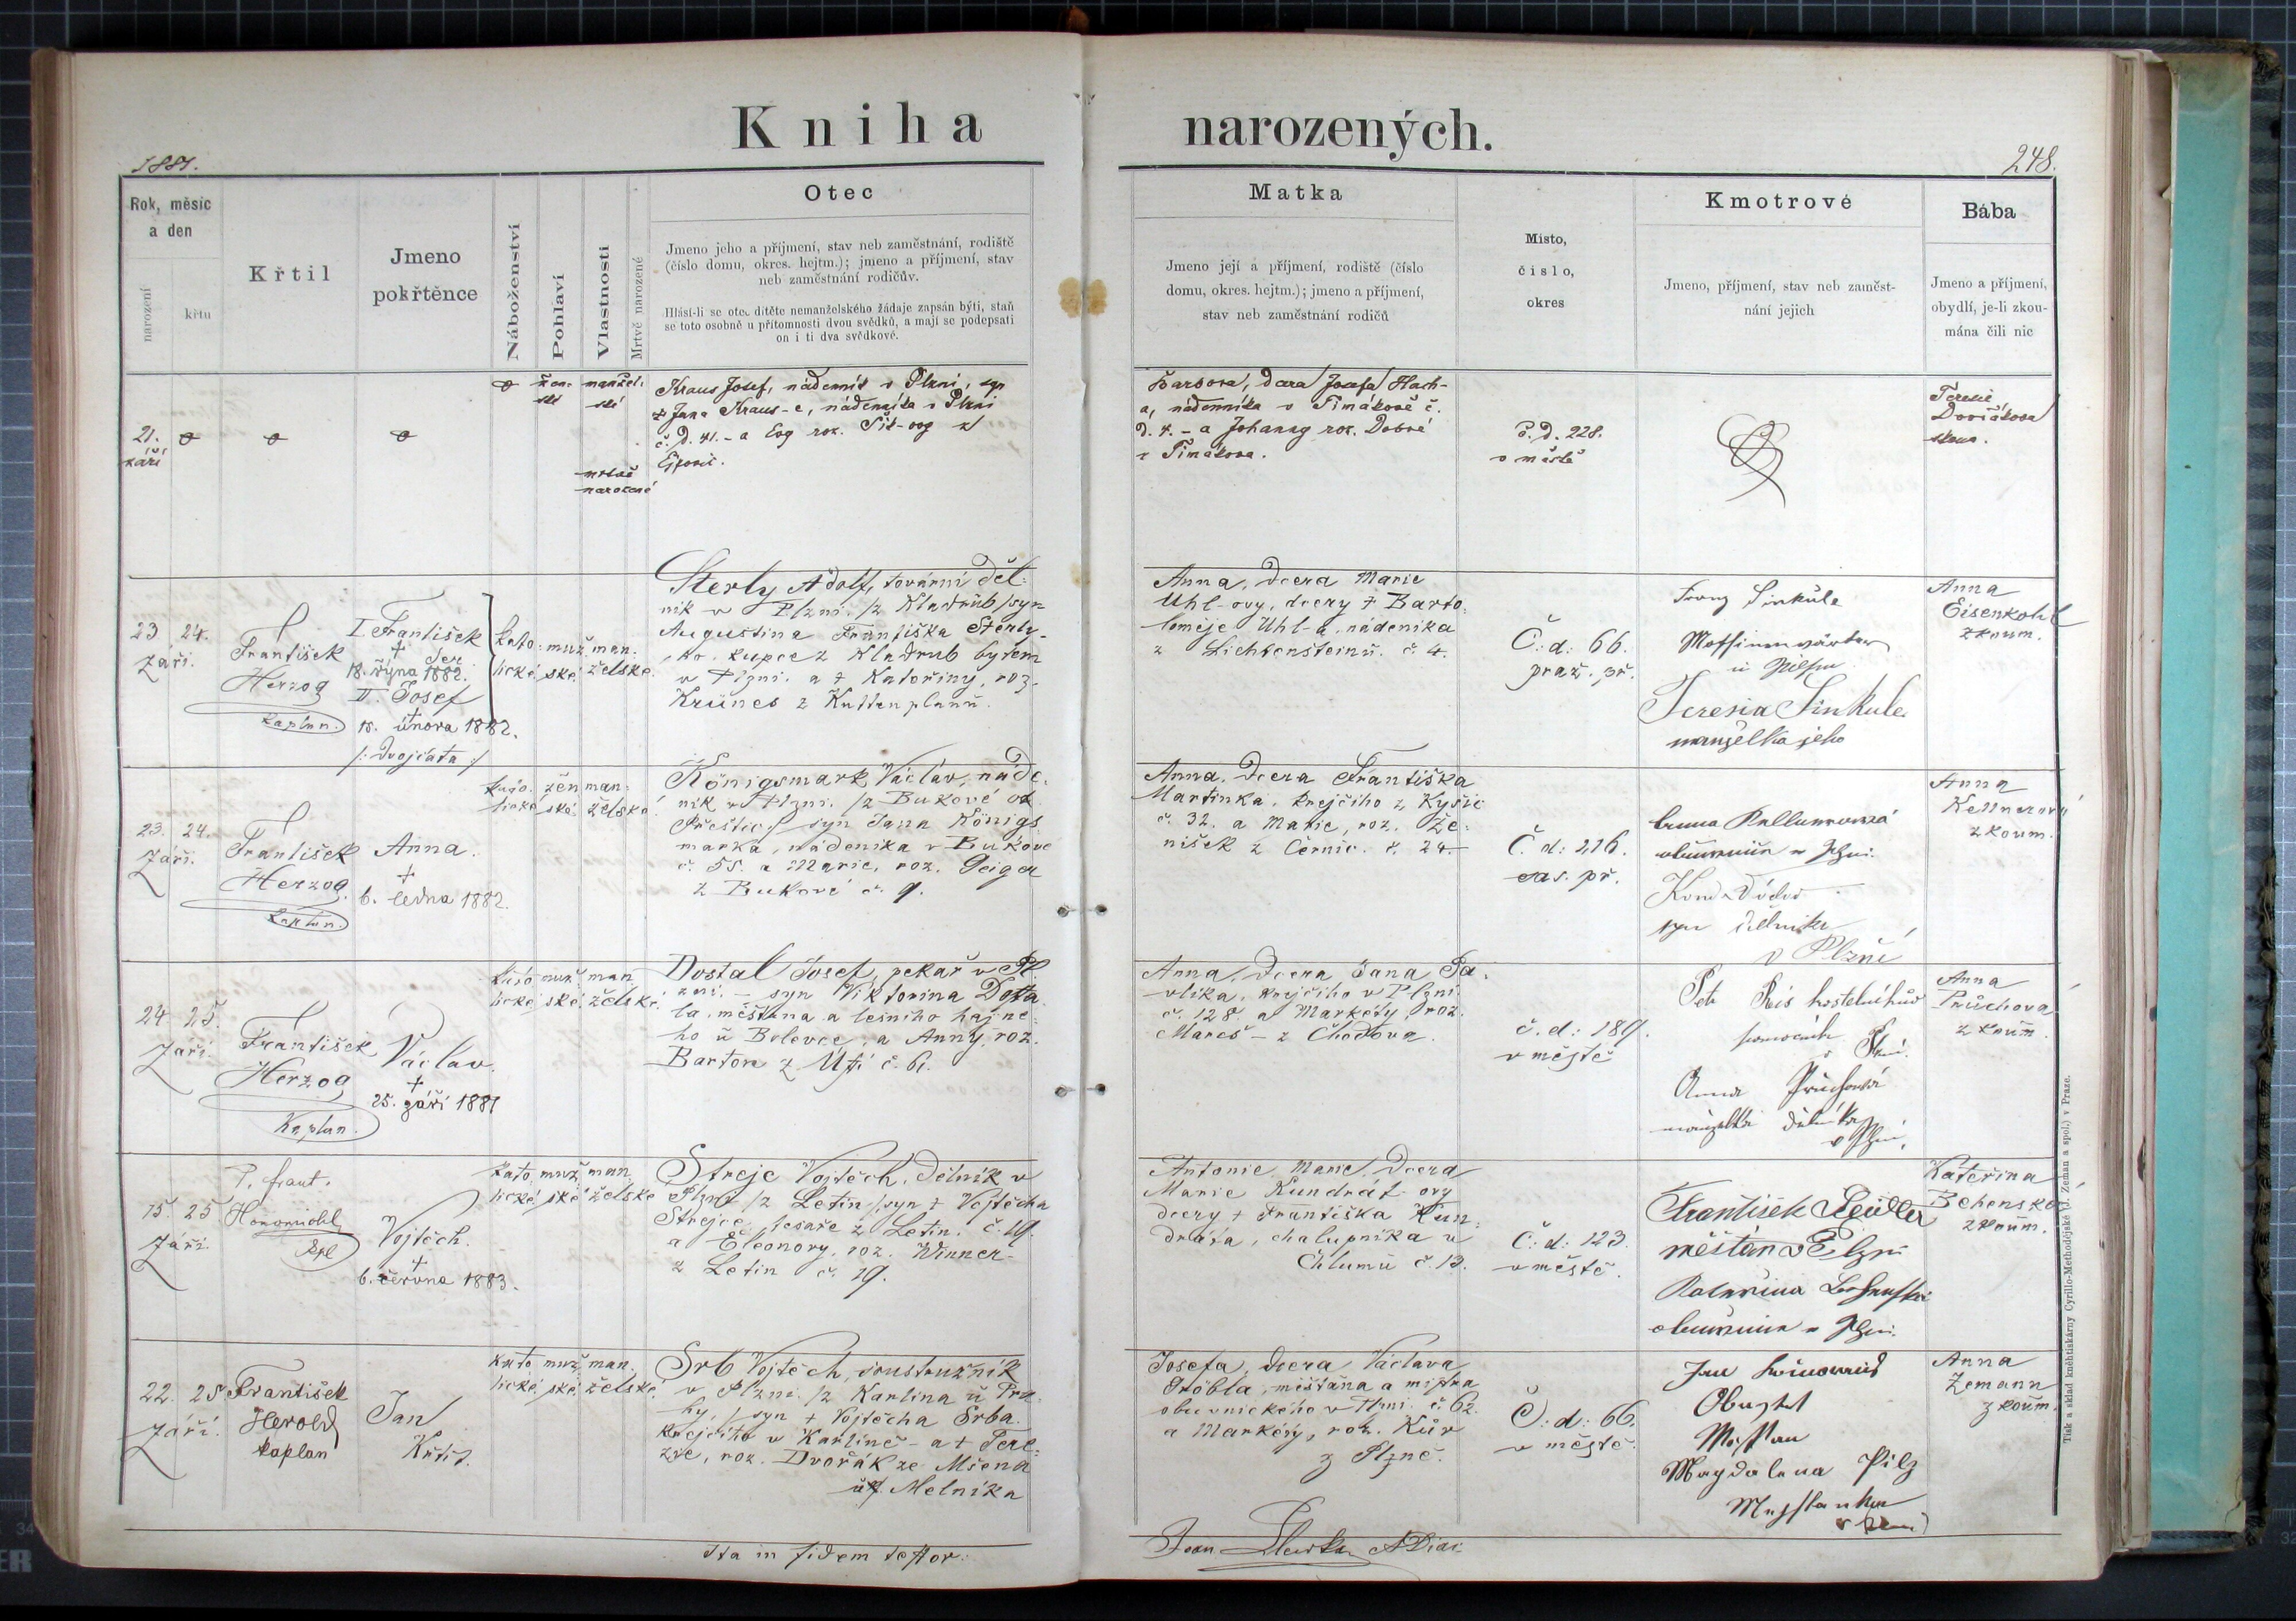 Kniha narozených.
1881.
248.
Rok, měsíc
a den
narození
křtu
Křtil
Jmeno
pokřtěnce
Náboženství
Pohlaví
Vlastnosti
Mrtvě narozené
Otec
Jmeno jeho a příjmení, stav neb zaměstnání, rodiště
(číslo domu, okres. hejtm.); jmeno a příjmení, stav
neb zaměstnání rodičův.
Hlásí-li se otec dítěte nemanželského žádaje zapsán býti, staň
se toto osobně u přítomnosti dvou svědků, a mají se podepsati
on i ti dva svědkové.
Matka
Jmeno její a příjmení, rodiště (číslo
domu, okres. hejtm.); jmeno a příjmení,
stav neb zaměstnání rodičů
Místo,
číslo,
okres
Kmotrové
Jmeno, příjmení, stav neb zaměst-
nání jejich
Bába
Jmeno a příjmení,
obydlí, je-li zkou-
mána čili nic
21.
září
žen-
ské
manžel-
ské
mrtvě
narozené
Kraus Josef, nádenník v Plzni, syn
† Jana Kraus-e, nádenníka v Plzni
č. D. 41. - a Evy roz.
Barbora, dcera Josefa Hach-
a, nádenníka v Timákově č.
D. 4. - a Johanny roz. Dobré
z Timákova.
Č. D. 228.
v městě
Terezie
Dvořákova
zkoum.
23 24.
Září.
František
Herzog
kaplan.
I. František
†
18. října 1882.
II. Josef
†
18. února 1882.
/: Dvojčata :/
kato- muž- man-
lické ské želské.
Sterly Adolf, tovární děl-
ník v Plzni. /z Kladrub/ syn
Augustina Františka Sterly-
ho kupce z Kladrub bytem
v Plzni. a † Kateřiny, roz.
Krünes z Kuttenplanu.
Anna, dcera Marie
Uhl-ovy, dcery † Barto-
loměje Uhl-a, nádeníka
z Lichtensteinu. č. 4.
Č: d: 66.
praž. př.
Franz Sinkule
Teresia Sinkule
manželka jeho
Anna
Eisenkohl
zkoum.
23. 24.
Září.
František
Herzog.
kaplan.
Anna.
†
6. ledna 1882.
kato- žen man-
lické ské želské
Königsmark Václav, náde-
ník v Plzni. /z Bukové ok.
Přeštic/ syn Jana Königs-
marka, nádeníka v Bukové
č. 55. a Marie, roz. Geiger
z Bukové č. 9.
Anna, dcera Františka
Martinka, krejčího z Kyšic
č. 32. a Marie, roz. Že-
níšek z Černic. č. 24.
Č. d: 216.
sas. př.
v Plzni
Anna
Kellnerová
zkoum.
24 25.
Září.
František
Herzog
Kaplan.
Václav.
†
25. září 1881
kato muž man
lické ské želské.
Dostal Josef, pekař v Pl-
zni. - syn Viktorina Dosta-
la, měšťana a lesního hajné-
ho u Bolevce, a Anny, roz.
Barton z Ústí č. 6.
Anna, dcera Jana Pa-
vlíka, krejčího v Plzni.
č. 128. a Markéty, roz.
Mareš - z Chodova.
č. d: 189.
v městě
Anna Průchová
manželka dělníka
v Plzni.
Anna
Průchova
zkoum.
15. 25
Září.
P. Frant.
Vojtěch.
†
6. června 1883.
kato muž man
lické ské želské
Streje Vojtěch, dělník v
Plzni /z Letin/ syn † Vojtěcha
Strejce, tesaře z Letin. č. 19.
a Eleonory, roz. Winner
z Letin č. 19.
Antonie Marie, dcera
Marie Kundrát-ovy
dcery † Františka Kun-
dráta, chalupníka u
Chlumu č. 13.
Č: d: 123.
v městě.
František
měšťan v Plzni
Kateřina
Behenská
zkoum.
22. 25
Září.
František
Herold
kaplan
Jan
Křtit.
kato muž man.
lické ské želské.
Srb Vojtěch, soustružník
v Plzni. /z Karlína u Pra-
hy, / syn † Vojtěcha Srba.
krejčího v Karlíně - a † Tere-
zie, roz. Dvořák ze Mšena
u Melníka
Josefa, dcera Václava
Stöbla, měšťana a mistra
obuvnického v Plzni. č. 62.
a Markéty, roz. Kůr
z Plzně.
Č: d: 66.
v městě.
Magdalena Pilz
Anna
Zemann
zkoum.
Ita in fidem testor:
Tisk a sklad knihtiskárny Cyrillo-Methodějské (J. Zeman a spol.) v Praze.